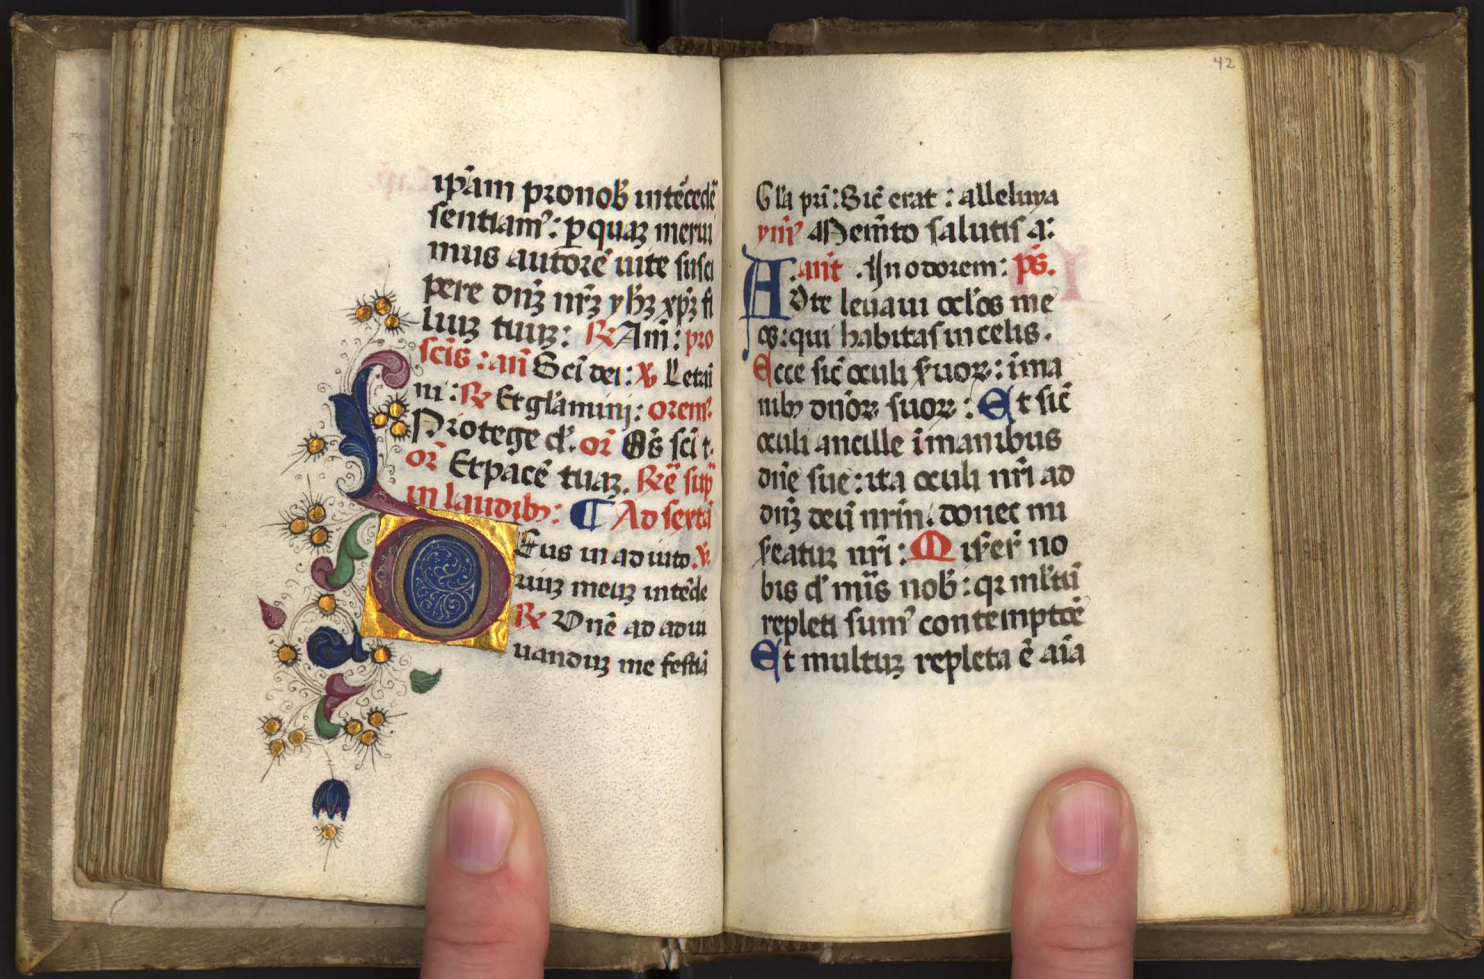 ip̄am pro nob̄ intēcedē
sentiam᷒: p quaꝫ merui
mus autorē uite susci
pere dn̄ꝫ nr̄ꝫ yh̄ꝫ xp̄ꝫ fi
liuꝫ tuuꝫ: ℟ Am̄: pro
scīs: an̄ Sc̄i dei: ℣ Letai
ni: ℟ Et gl̄amini: orem᷒
Protege d᷒. or̄ Oē̄s sc̄i t.
or̄ Et pacē tuaꝫ. ℟ē sup̄
in laudibꝫ: C Ad sextā
Deus in adiuto. ℣.
riuꝫ meuꝫ intēde
℟ Dnē ad adiu
uanduꝫ me festiā
42
Gl̄a pri᷒: Sic̄ erat: alleluya
ym᷒ Mem̄to salutis a:
an̄t. In odorem: ps̄.
Ad te leuaui ocl̄os me
os: qui habitas in celis.
Ecce sic̄ oculi s̄uoꝝ: ī ma
nibꝫ dn̄oꝝ suoꝝ: Et sic̄
oculi ancille ī manibus
dn̄e sue: ita oculi nr̄i ad
dn̄ꝫ deū nr̄m. donec mi
s̄eatur nr̄i: Mis̄er̄ no
bis d᷒ mis̄ nob̄: qꝛ ml̄tū
repleti sum᷒ contemptōē
Et multuꝫ repleta ē aīa